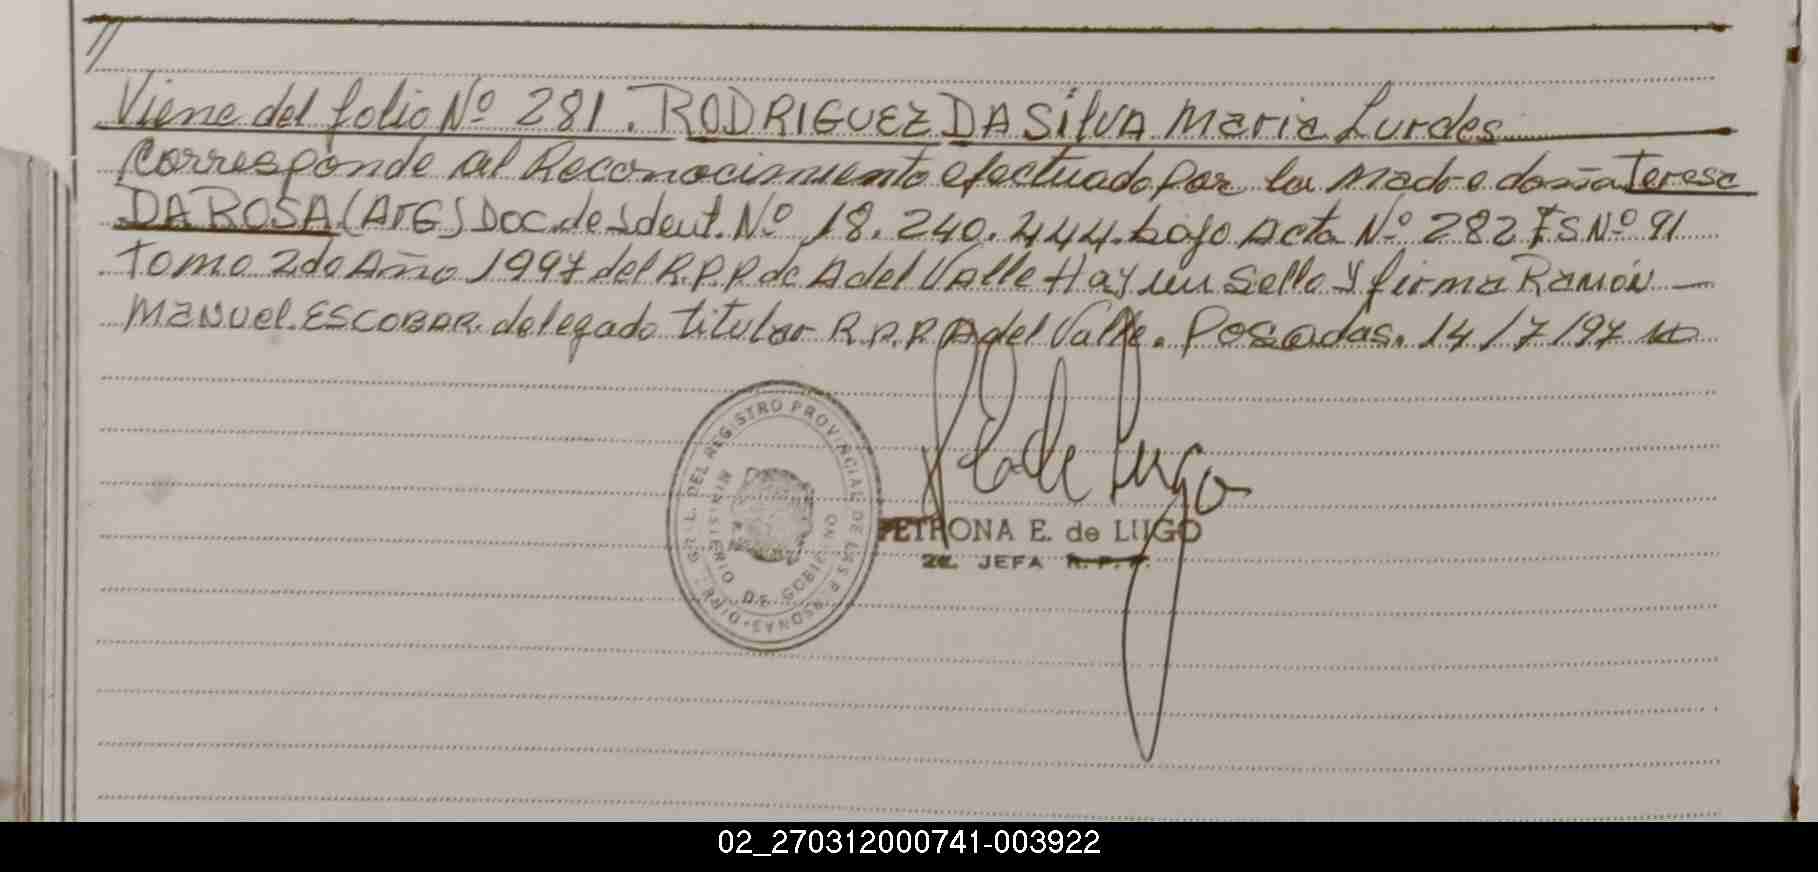 Viene del folio Nº 281. RODRIGUEZ DA SilVA Maria Lurdes
Corresponde al Reconocimiento efectuado por la Madre doña Teresa
DA ROSA (ArG) Doc. de Ident. Nº 18.240.444. bajo Acta Nº 282 FS Nº 91
Tomo 2do Año 1997 del R.P.P de A del Valle Hay un Sello y firma RAMÓN
MANUEL ESCOBAR. delegado titular R.P.P. A del Valle. Posadas. 14/7/97
DIR. GRAL. DEL REGISTRO PROVINCIAL DE LAS PERSONAS
MINISTERIO DE GOBIERNO
PETRONA E. de LUGO
JEFA R.P.P.
02_270312000741-003922